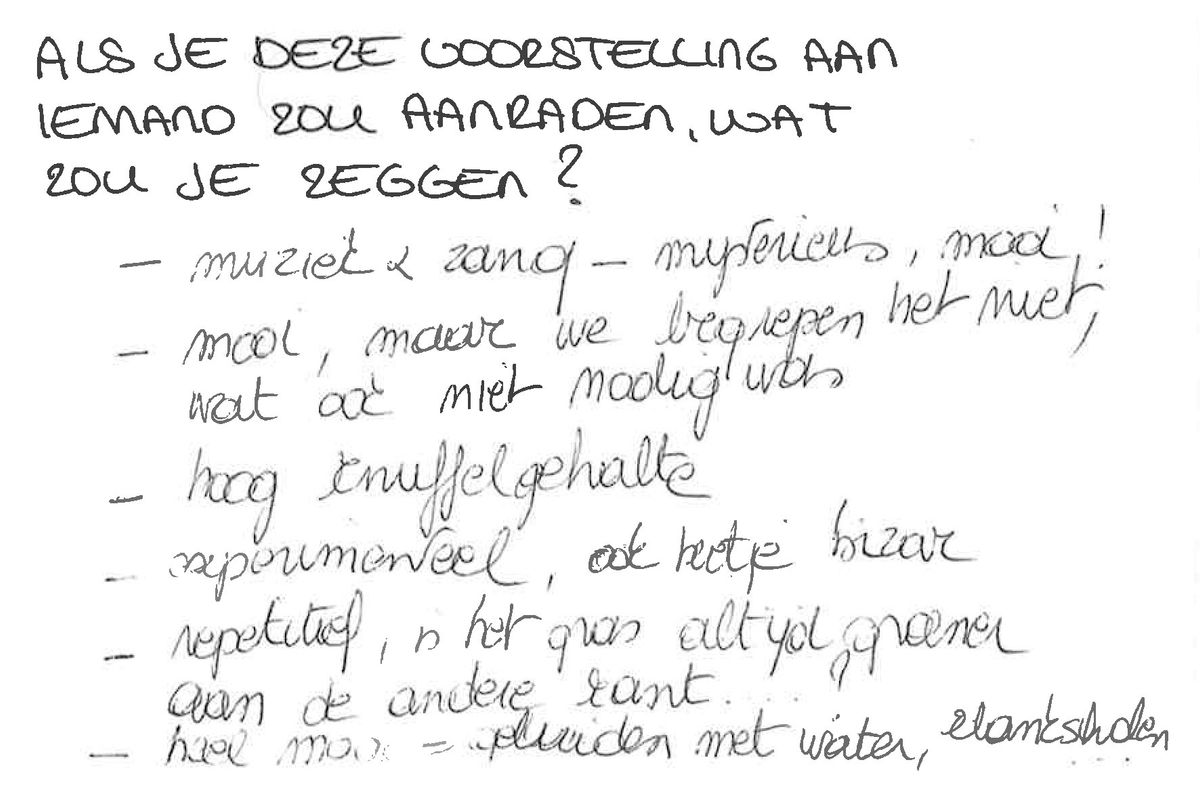 ALS JE DEZE VOORSTELLING AAN
IEMAND ZOU AANRADEN, WAT
ZOU JE ZEGGEN?
- muziek & zang - mysterieus, mooi!
- mooi, maar we begrepen het niet,
wat ook niet nodig was
- hoog knuffelgehalte
- experimenteel, ook beetje bizar
- repetitief, is het gras altijd groener
aan de andere kant...?
- heel mooi = geluiden met water, klankschalen